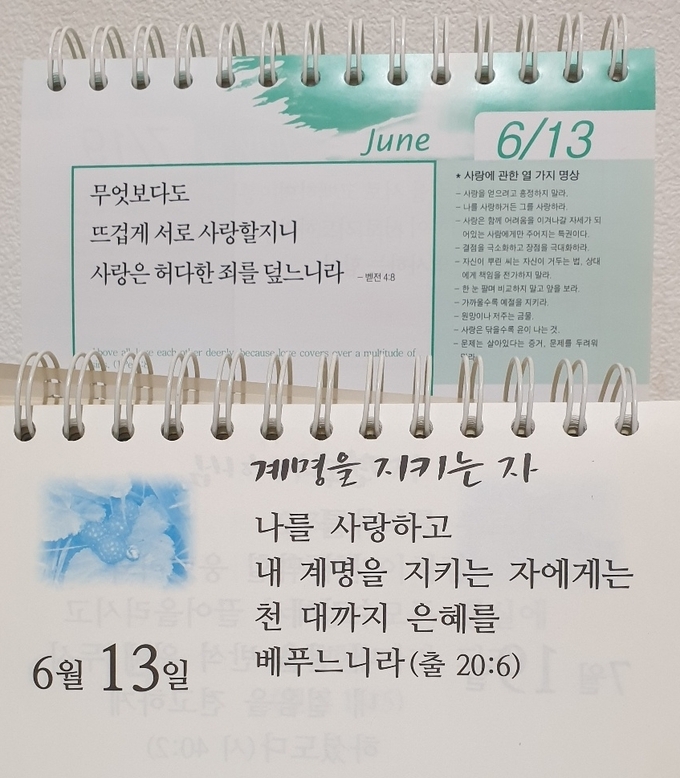 June
6/13
무엇보다도
뜨겁게 서로 사랑할지니
사랑은 허다한 죄를 덮느니라 - 벧전 4:8
Above all, love each other deeply, because love covers over a multitude of
* 사랑에 관한 열 가지 명상
- 사랑을 얻으려고 흥정하지 말라.
- 나를 사랑하거든 그를 사랑하라.
- 사랑은 함께 어려움을 이겨나갈 자세가 되
어있는 사람에게만 주어지는 특권이다.
- 결점을 극소화하고 장점을 극대화하라.
- 자신이 뿌린 씨는 자신이 거두는 법, 상대
에게 책임을 전가하지 말라.
- 한 눈 팔며 비교하지 말고 앞을 보라.
- 가까울수록 예절을 지키라.
- 원망이나 저주는 금물.
- 사랑은 닦을수록 윤이 나는 것.
- 문제는 살아있다는 증거, 문제를 두려워
계명을 지키는 자
나를 사랑하고
내 계명을 지키는 자에게는
천 대까지 은혜를
베푸느니라(출 20:6)
6월 13일